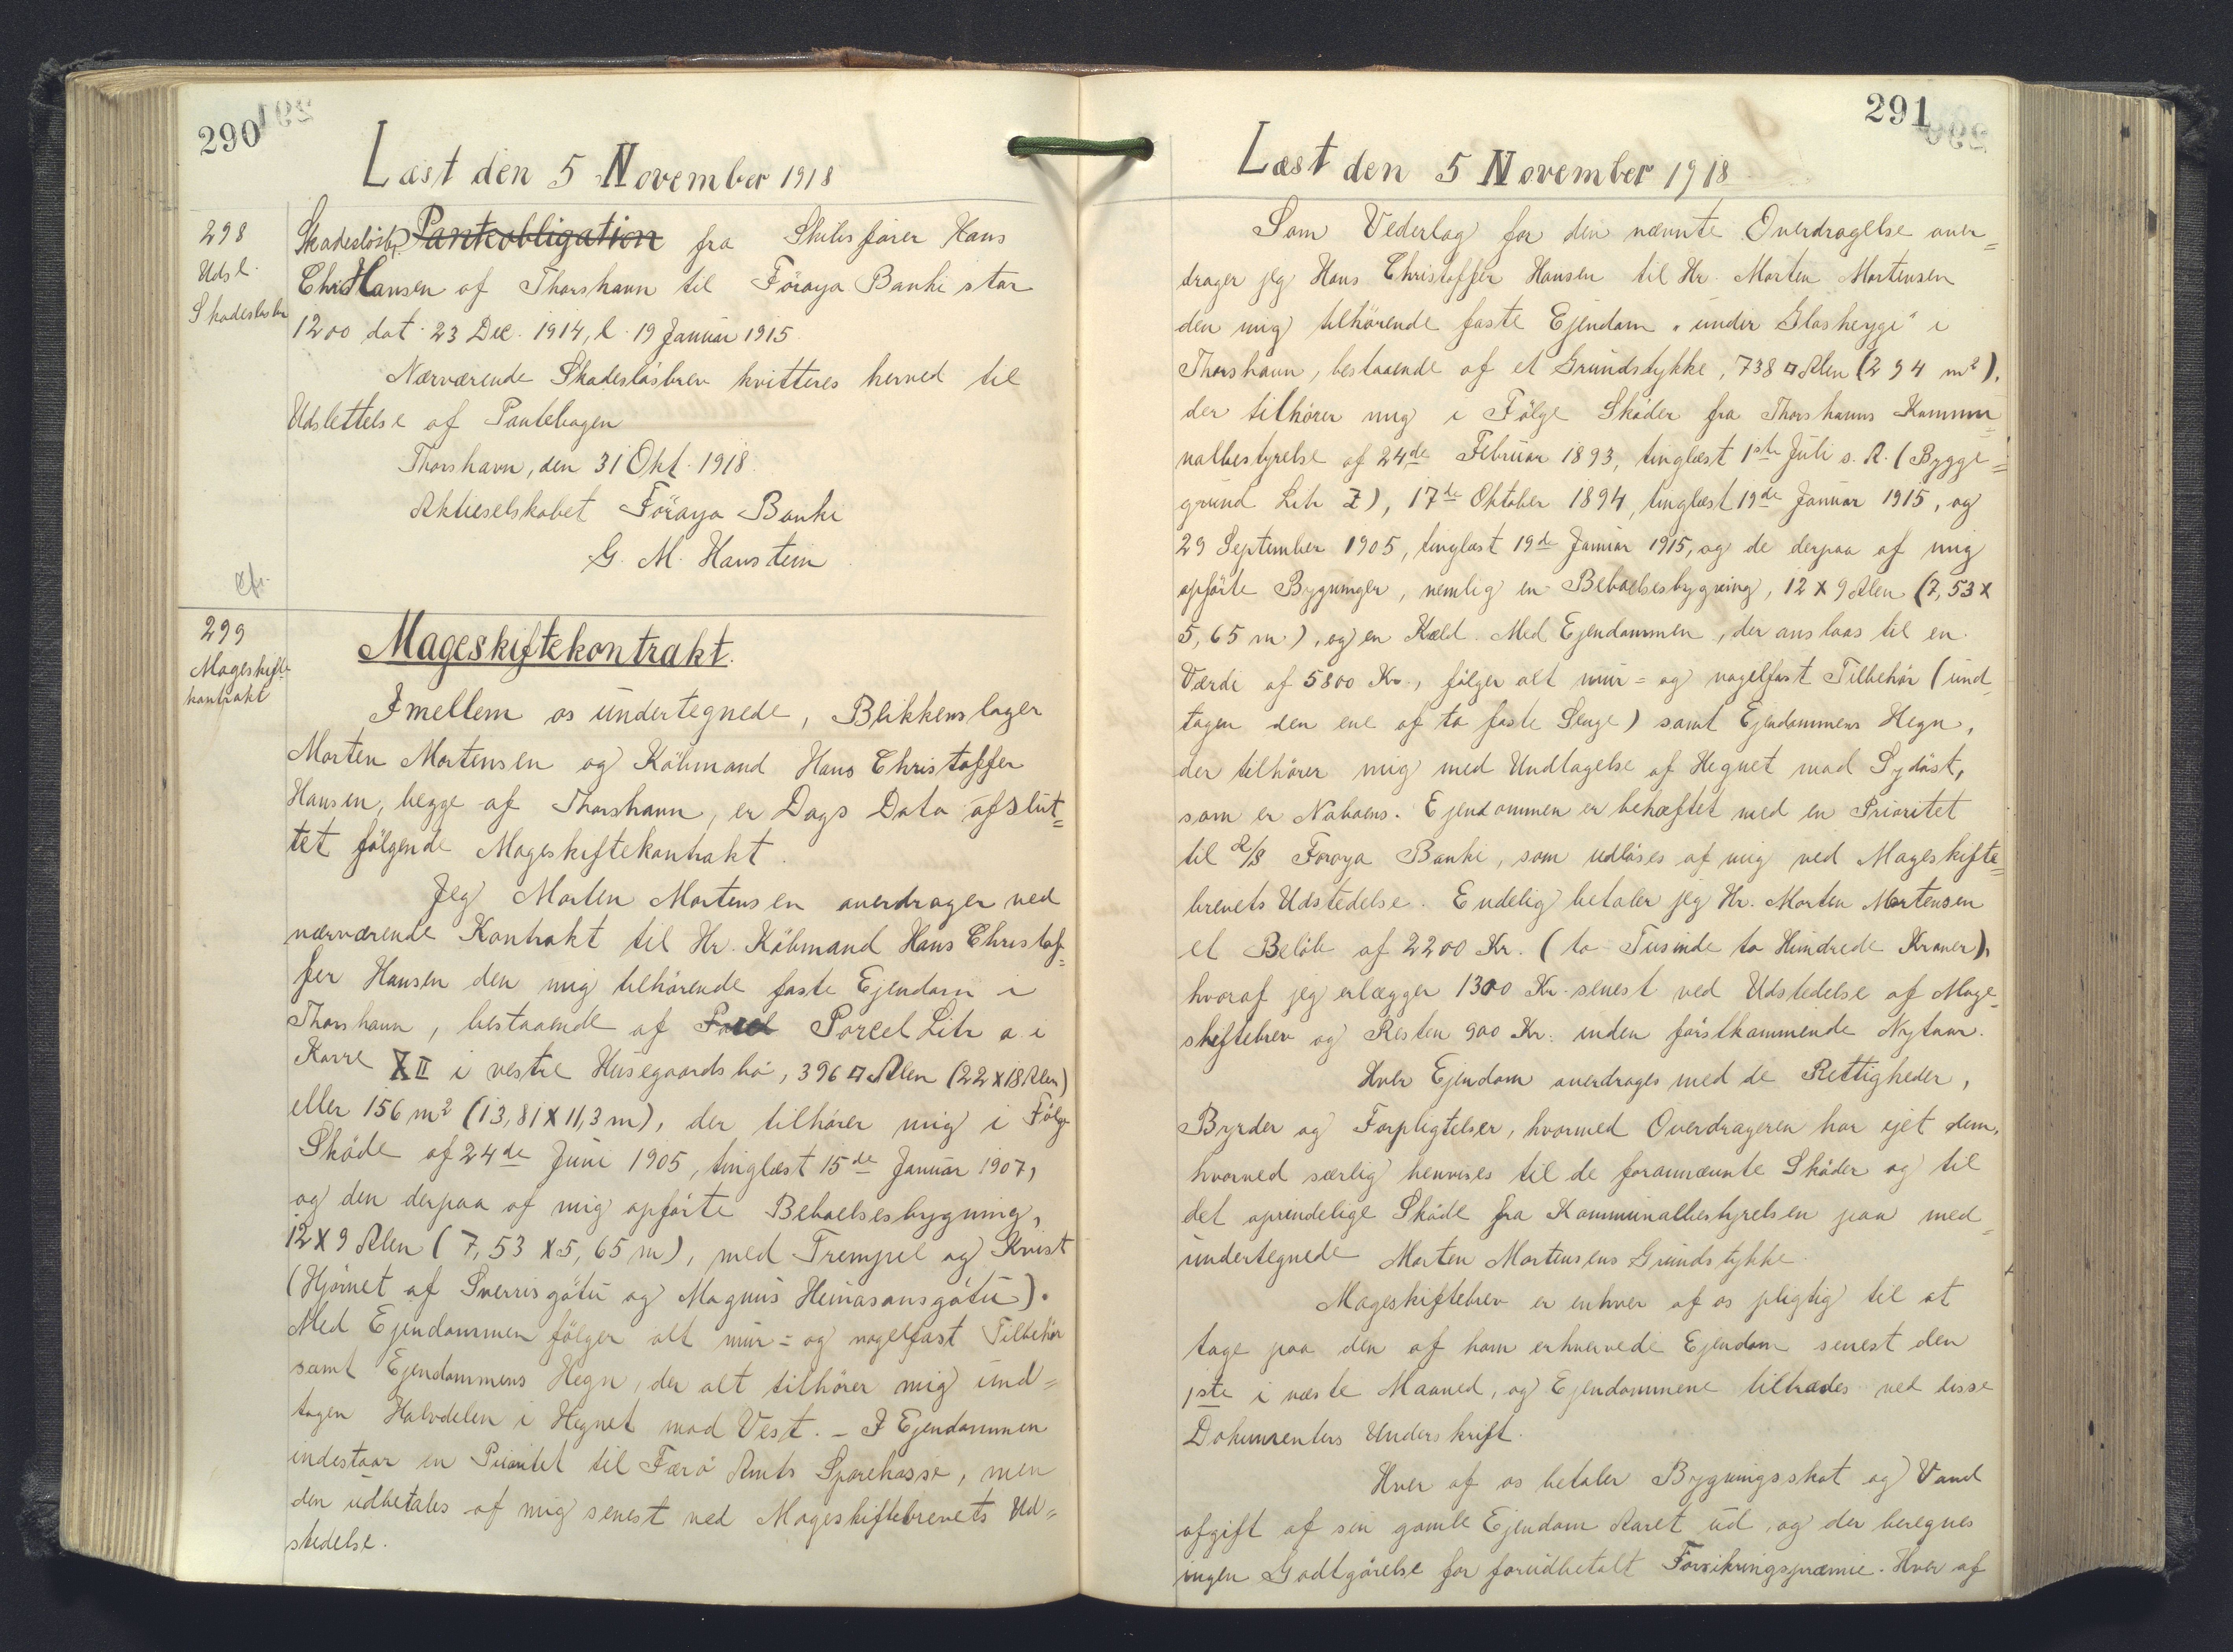 290
Læst den 5 November 1918
298
Udsl.
Skadesløsbr
Skadeslösbr. Pantobligation fra Skibsförer Hans
Chr Hansen af Thorshavn til Föroya Banki stor
1200 dat. 23 Dec. 1914, l. 19 Januar 1915.
Nærværende Skadeslösbrev kvitteres herved til
Udslettelse af Pantebogen
Thorshavn, den 31 Okt. 1918.
Aktieselskabet Föroya Banki
G. M. Haustein
299
Mageskifte-
kontrakt
Mageskiftekontrakt.
Imellem os undertegnede, Blikkenslager
Morten Mortensen og Köbmand Hans Christoffer
Hansen, begge af Thorshavn, er Dags Dato afslut=
tet fölgende Mageskiftekontrakt.
Jeg Morten Mortensen overdrager ved
nærværende Kontrakt til Hr. Köbmand Hans Christof=
fer Hansen den mig tilhörende faste Ejendom i
Thorshavn, bestaaende af Parcel Litr a i
Karré XII i vestre Husegaardsbö, 396 □ Alen (22 x 18 Alen)
eller 156 m² (13,81 x 11,3 m), der tilhörer mig i Fölge
Sköde af 24de Juni 1905, tinglæst 15de Januar 1907,
og den derpaa af mig opförte Beboelsesbygning,
12 x 9 Alen (7,53 x 5,65 m), med Trempel og Kvist
(Hjörnet af Sverrisgötu og Magnus Heinasonsgötu).
Med Ejendommen fölger alt mur= og nagelfast Tilbehör
samt Ejendommens Hegn, der alt tilhörer mig und=
tagen Halvdelen i Hegnet mod Vest. - I Ejendommen
indestaar en Prioritet til Færö Amts Sparekasse, men
den udbetales af mig senest ved Mageskiftebrevets Ud=
stedelse.
291
Læst den 5 November 1918
Som Vederlag for den nævnte Overdragelse over=
drager jeg Hans Christoffer Hansen til Hr. Morten Mortensen
den mig tilhörende faste Ejendom "undir Glasheyggi" i
Thorshavn, bestaaende af et Grundstykke, 738 □ Alen (294 m²),
der tilhörer mig i Fölge Sköder fra Thorshavns Kommu=
nalbestyrelse af 24de Februar 1893, tinglæst 1ste Juli s. A. (Bygge=
grund Litr Z), 17de Oktober 1894, tinglæst 19de Januar 1915, og
29 September 1905, tinglæst 19de Januar 1915, og de derpaa af mig
opförte Bygninger, nemlig en Beboelsesbygning, 12 x 9 Alen (7,53 x
5,65 m), og en Kæld. Med Ejendommen, der anslaas til en
Værdi af 5800 Kr., fölger alt mur= og nagelfast Tilbehör (und=
tagen den ene af to faste Senge) samt Ejendommens Hegn,
der tilhörer mig med Undtagelse af Hegnet mod Sydöst,
som er Naboens. Ejendommen er behæftet med en Prioritet
til A/S Föroya Banki, som udlöses af mig ved Mageskifte=
brevets Udstedelse. Endelig betaler jeg Hr. Morten Mortensen
et Belöb af 2200 Kr. (to Tusinde to Hundrede Kroner),
hvoraf jeg erlægger 1300 Kr. senest ved Udstedelse af Mage=
skiftebrev og Resten 900 Kr. inden förstkommende Nytaar.
Hver Ejendom overdrages med de Rettigheder,
Byrder og Forpligtelser, hvormed Overdrageren har ejet dem,
hvorved særlig henvises til de forannævnte Sköder og til
det oprindelige Sköde fra Kommunalbestyrelsen paa med=
undertegnede Morten Mortensens Grundstykke.
Mageskiftebrev er enhver af os pligtig til at
tage paa den af ham erhvervede Ejendom senest den
1ste i næste Maaned, og Ejendommene tiltrædes ved disse
Dokumenters Underskrift.
Hver af os betaler Bygningsskat og Vand
afgift af sin gamle Ejendom Aaret ud, og der beregnes
ingen Godtgörelse for forudbetalt Forsikringspræmie. Hver af